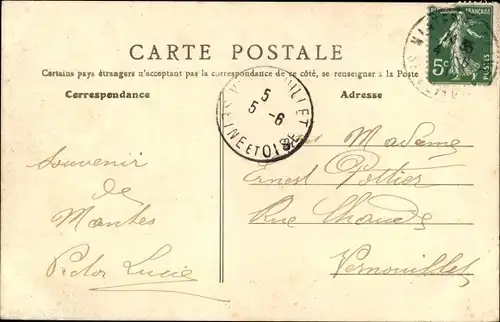 CARTE POSTALE
Certains pays étrangers n'acceptant pas la correspondance de ce côté, se renseigner à la Poste
Correspondance
Adresse
FRANÇAISE
5c
POSTES
5
5 -6
SEINE ET OISE
Souvenir
de
Mantes
Victor Lucie
Madame
Ernest Pottier
Rue Chaude
Vernouillet